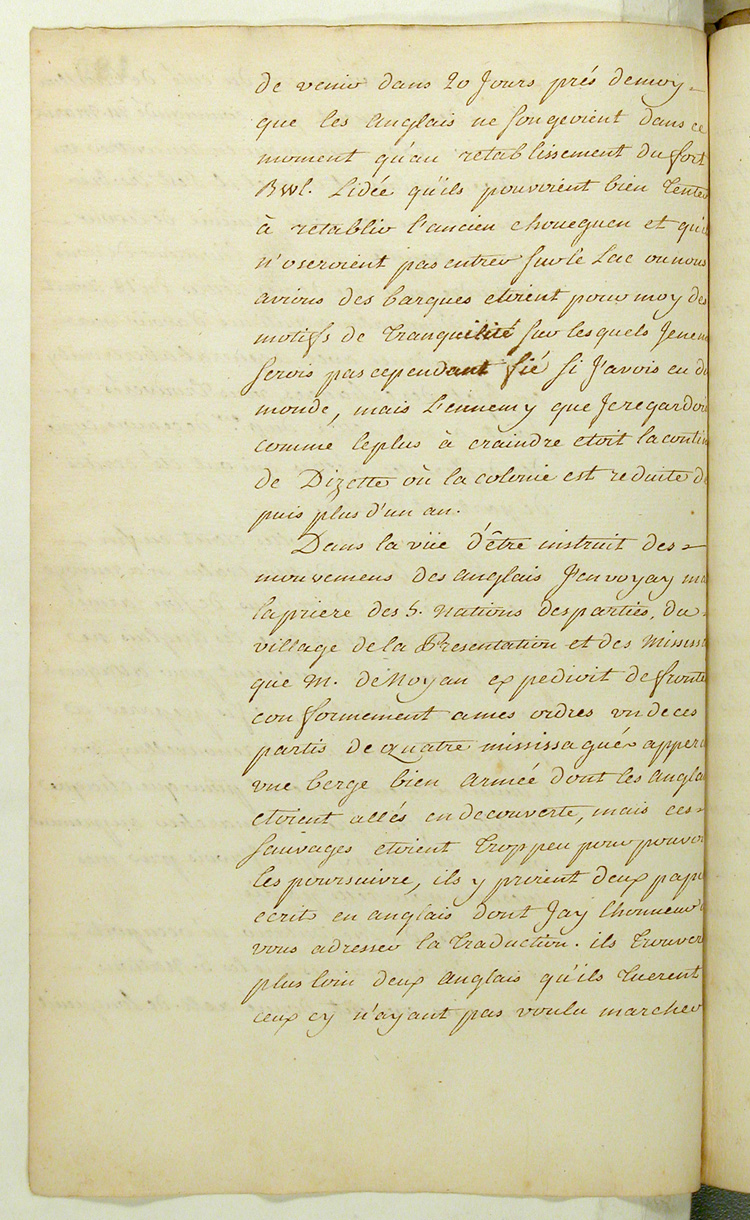 de venir dans 20 Jours prés demoy =
que les anglais ne songeoient dans ce
moment qu'au retablissement du fort
Bwl. Lidée qu'ils pouvoient bien Tenter
à retablir l'ancien choueguen et qu'il
n'oseroient pas entrer sur le Lac ou nous
avions des barques etoient pour moy des
motifs de Tranquilité sur lesquels Jenem
serois pas cependant fié si J'avois eu du
monde, mais L'ennemy que Jeregardoi
comme leplus à craindre etoit la contin
de Dizette où la colonie est reduite de
puis plus d'un an.
Dans la vüe d'être instruit des =
mouvemens des anglais J'envoyay ma
lapriere des 5. nations desparties, du =
village de la Presentation et des Mississa
que M. deNoyan expedioit defronte
conformement ames ordres vn de ces
partis de quatre mississagués apperc
vne berge bien armée dont les angla
etoient allés endecouverte, mais ces =
sauvages etoient Trop peu pour pouvoi
les poursuivre, ils y prirent deux papi
ecrits en anglais dont Jay lhonneur d
vous adresser la Traduction. ils Trouver
plus loin deux anglais qu'ils Tuerent
ceux cy n'ayant pas voulu marcher